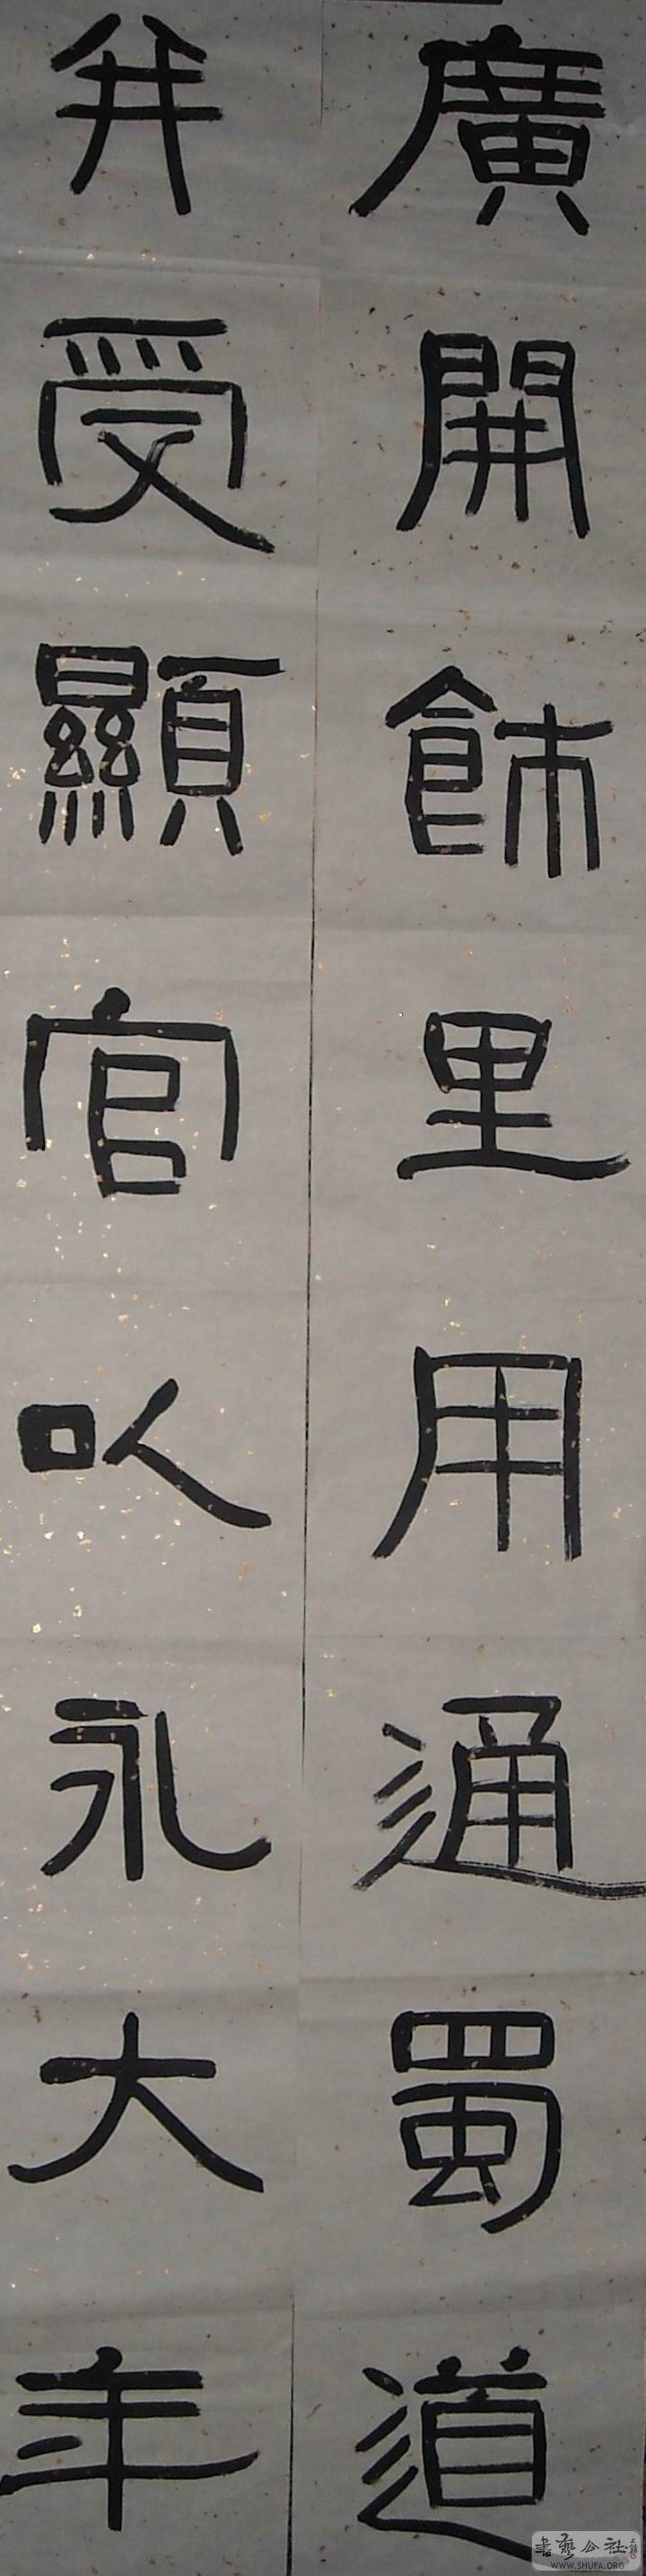 廣開飾里用通蜀道
并受顯官以永大年
書藝公社
WWW.SHUFA.ORG